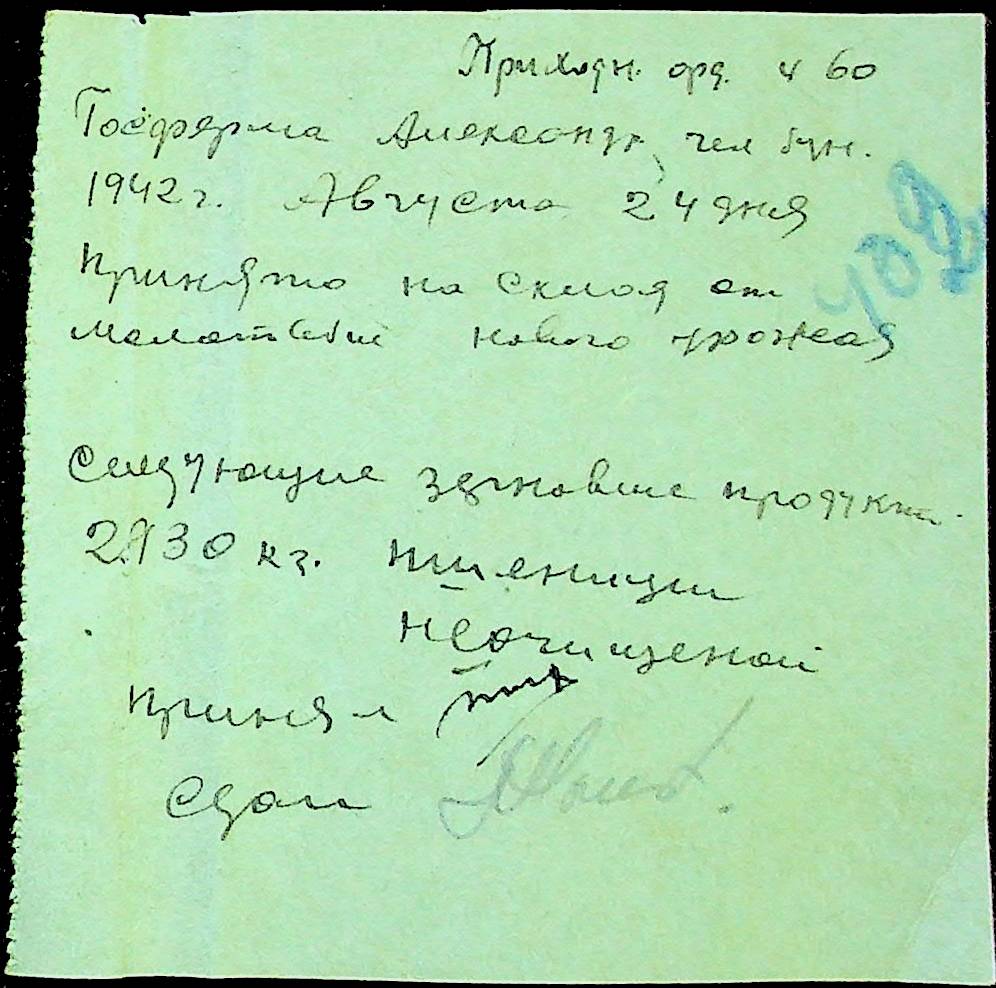 Приходн. орд. ч 60
Госферма Александр, чел бун.
1942 г. Августа 24 дня
Принято на склад от
малотьбы нового урожая
Следующие зерновые продукт.
2930 кг. пшеницы
неочищеной
принял
Сдал